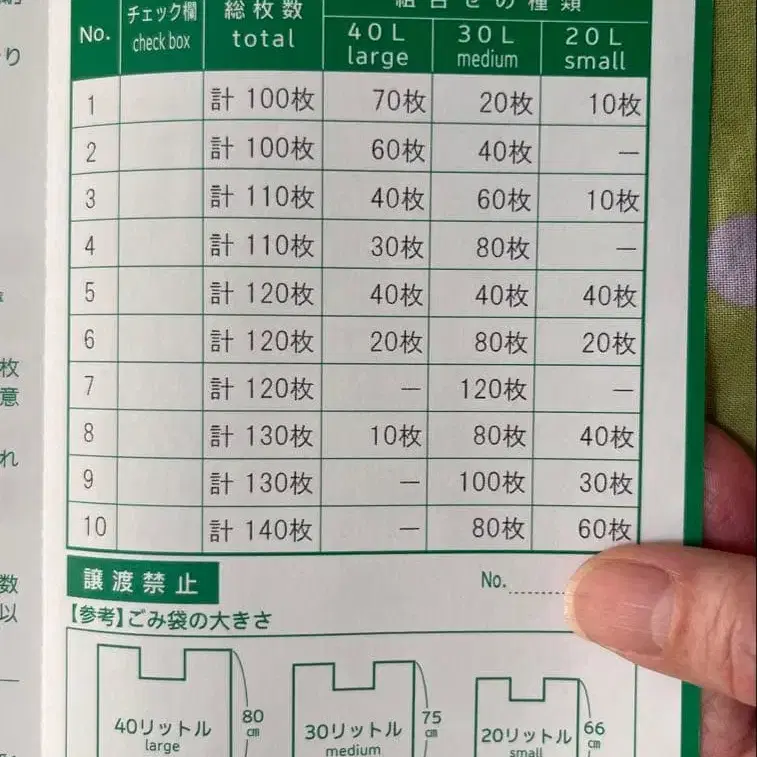 り
枚
意
れ
数
以
No. チェック欄 総枚数 組合せの種類
check box total 40L 30L 20L
large medium small
1 計 100枚 70枚 20枚 10枚
2 計 100枚 60枚 40枚 —
3 計 110枚 40枚 60枚 10枚
4 計 110枚 30枚 80枚 —
5 計 120枚 40枚 40枚 40枚
6 計 120枚 20枚 80枚 20枚
7 計 120枚 — 120枚 —
8 計 130枚 10枚 80枚 40枚
9 計 130枚 — 100枚 30枚
10 計 140枚 — 80枚 60枚
譲渡禁止 No.
【参考】ごみ袋の大きさ
40リットル 80cm 30リットル 75cm 20リットル 66cm
large medium small